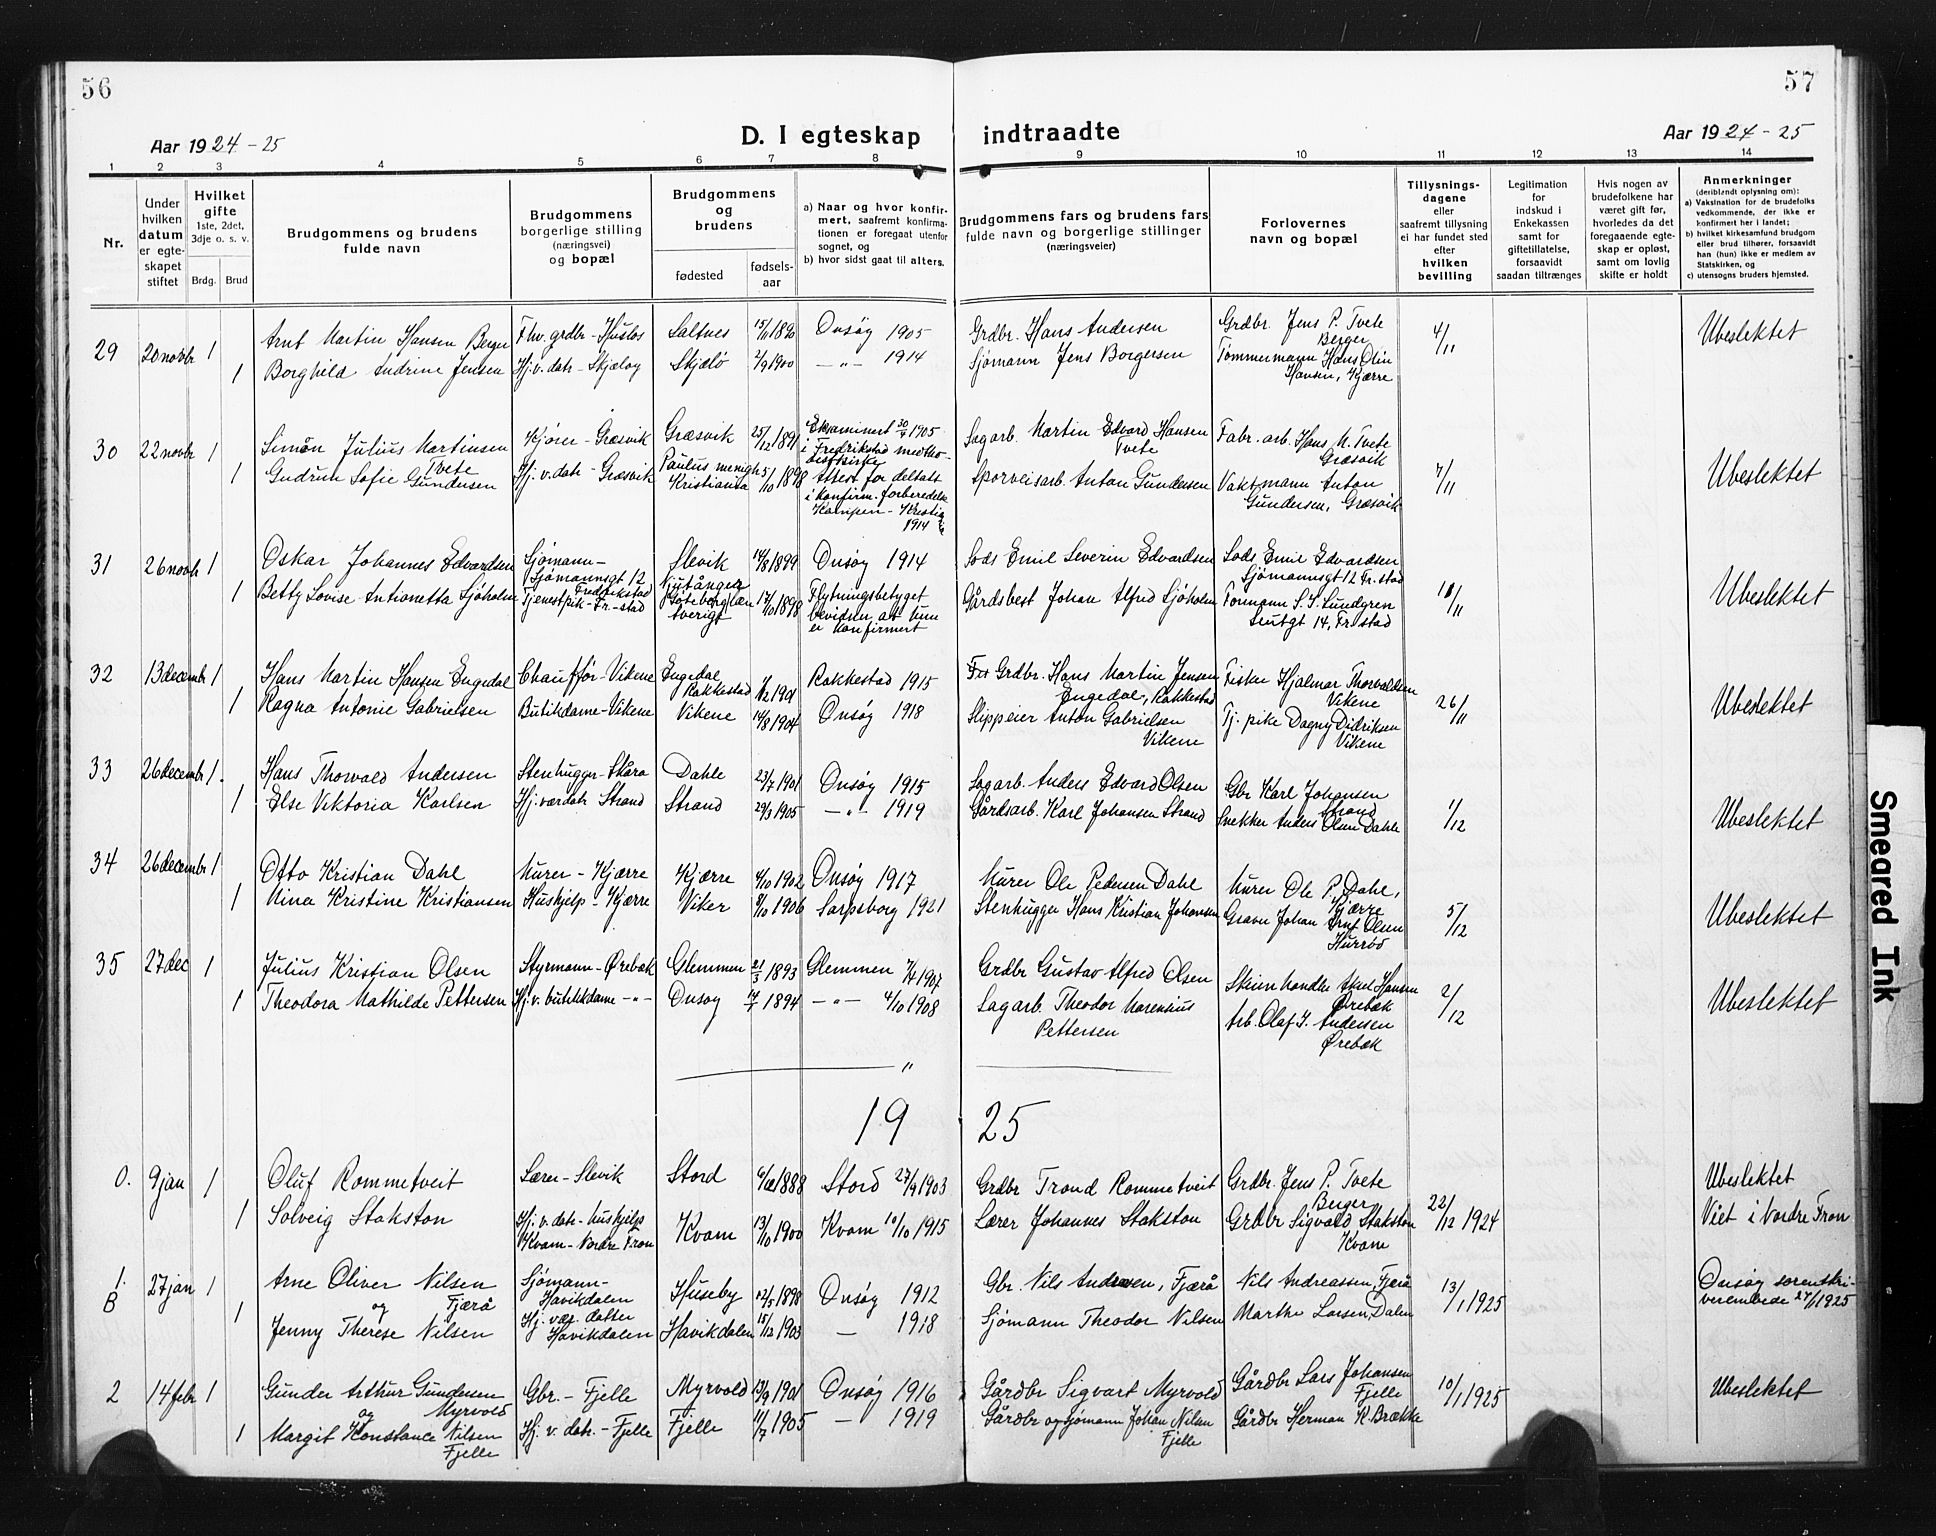 56
57
Aar 1924-25
D. I egteskap indtraadte
Aar 1924-25
1 2 3 4 5 6 7 8 9 10 11 12 13 14
Nr.
Under hvilken datum er egte-skapet stiftet
Hvilket gifte 1ste, 2det, 3dje o. s. v.
Brdg. Brud
Brudgommens og brudens fulde navn
Brudgommens borgerlige stilling (næringsvei) og bopæl
Brudgommens og brudens
fødested
fødsels-aar
a) Naar og hvor konfirmert, saafremt konfirmationen er foregaat utenfor sognet, og
b) hvor sidst gaat til alters.
Brudgommens fars og brudens fars fulde navn og borgerlige stillinger (næringsveier)
Forlovernes navn og bopæl
Tillysnings-dagene eller saafremt tillysning ei har fundet sted efter hvilken bevilling
Legitimation for indskud i Enkekassen samt for giftetillatelse, forsaavidt saadan tiltrænges
Hvis nogen av brudefolkene har været gift før, hvorledes da det foregaaende egteskap er opløst, samt om lovlig skifte er holdt
Anmerkninger (deriblandt oplysning om):
a) Vaksination for de brudefolks vedkommende, der ikke er konfirmert her i landet;
b) hvilket kirkesamfund brudgom eller brud tilhører, forsaavidt han (hun) ikke er medlem av Statskirken, og
c) utensogns bruders hjemsted.
29 20 novbr 1 Arnt Martin Hansen Berger Fhv. grdbr - Huslos Saltnes 15/11 1890 Onsøy 1905 Grdbr. Hans Andersen Grdbr. Jens P. Tvete Berger 4/11 Ubeslektet
1 Borghild Andrine Jensen Hj. v. datr - Skjæløy Skjælø 2/9 1900 -"- 1914 Sjømann Jens Borgersen Tømmermann Hans Olin Hansen, Kjærre
30 22 novbr 1 Simon Julius Martinsen Tvete Kjører - Græsvik Græsvik 25/12 1891 Eksaminert 30/4 1905 i Fredrikstad metho-distkirke Sagarb. Martin Edvard Hansen Tvete Fabr. arb. Hans M. Tvete Græsvik 7/11 Ubeslektet
1 Gudrun Sofie Gundersen Hj. v. datr - Græsvik Paulus menigh Kristiania 5/10 1898 Attest for deltatt i konfirm. forberedelse Kampen - Kristia 1914 Sporveisarb. Anton Gundersen Vaktmann Anton Gundersen, Græsvik
31 26 novbr 1 Oskar Johannes Edvardsen Sjømann - Sjømannsgt 12 Fredrikstad Slevik 14/8 1899 Onsøy 1914 Lods Emil Severin Edvardsen Lods Emil Edvardsen Sjømannsgt 12 Fr. stad 11/11 Ubeslektet
1 Betty Lovise Antionetta Sjöholm Tjenestpik - Fr.-stad Njutånger Sverige 17/10 1898 Flytningsbetyget bevidsn at hun er konfirmert Gårdsbest Johan Alfred Sjöholm Formann S. S. Lundgren 14, Fr. stad
32 13 decembr 1 Hans Martin Hansen Engedal Chauffør - Vikene Engedal Rakkestad 1/12 1901 Rakkestad 1915 Grdbr. Hans Martin Jensen Engedal, Rakkestad Fisker Hjalmar Thorvaldsen Vikene 26/11 Ubeslektet
1 Ragna Antonie Gabrielsen Butikdame - Vikene Vikene 14/8 1904 Onsøy 1918 Slippeier Anton Gabrielsen Vikene Tj. pike Dagny Didriksen Vikene
33 26 decembr 1 Hans Thorvald Andersen Stenhugger - Skåra Dahle 23/7 1901 Onsøy 1915 Sagarb. Anders Edvard Olsen Gbr Karl Johansen Strand 1/12 Ubeslektet
1 Else Viktoria Karlsen Hj. værdatr Strand Strand 29/3 1905 -"- 1919 Gårdsarb. Karl Johansen Strand Snekker Anders Olsen Dahle
34 26 decembr 1 Otto Kristian Dahl Murer - Kjærre Kjærre 4/10 1902 Onsøy 1917 Murer Ole Pedersen Dahl Murer Ole P. Dahl, Kjærre 5/12 Ubeslektet
1 Nina Kristine Kristiansen Huskjelp - Kjærre Viker 8/10 1906 Sarpsborg 1921 Stenhugger Hans Kristian Johansen Graver Johan Arnt Olsen Hurrød
35 27 dec 1 Julius Kristian Olsen Styrmann - Ørebæk Glemmen 21/5 1893 Glemmen 1907 Grdbr Gustav Alfred Olsen Aksel Hansen Ørebæk 2/12 Ubeslektet
1 Theodora Mathilde Pettersen Hj. v. butikkdame -"- Onsøy 14/7 1894 -"- 4/10 1908 Sagarb. Theodor Marensius Pettersen Arb. Olaf J. Andersen Ørebæk
"
1925
0. 9 jan 1 Oluf Rommetveit Lærer - Slevik Stord 6/12 1888 Stord 27/9 1903 Grdbr Trond Rommetveit Grdbr. Jens P. Tvete Berger 22/12 1924 Ubeslektet
1 Solveig Stakston Hj. v. datr - huskjelp Kvam - Nordre Fron Kvam 13/10 1900 Kvam 10/10 1915 Lærer Johannes Stakston Grdbr Sigvald Stakston Kvam Viet i Nordre Fron
1. B 27 jan 1 Arne Oliver Nilsen Fjærå Sjømann - Havikdalen Huseby 12/5 1898 Onsøy 1912 Gbr. Nils Andresen, Fjærå Nils Andreassen, Fjærå 13/1 1925 Onsøy sorenskri-verembede 27/1 1925
og
1 Jenny Therese Nilsen Hj. vær. datter Havikdalen Havikdalen 15/12 1903 - 1918 Sjømann Theodor Nilsen Marthe Larsen, Dalen
2 14 febr 1 Gunder Arthur Gundersen Myrvold Gbr. - Fjelle Myrvold 13/9 1901 Onsøy 1916 Gårdbr Sigvart Myrvold Gårdbr Lars Johansen Fjelle 10/1 1925 Ubeslektet
og
1 Margit Konstance Nilsen Fjelle Hj. v. datr. - Fjelle Fjelle 11/7 1905 - 1919 Gårdbr og sjømann Johan Nilsen Fjelle Gårdbr Herman K. Brække
Smeared Ink